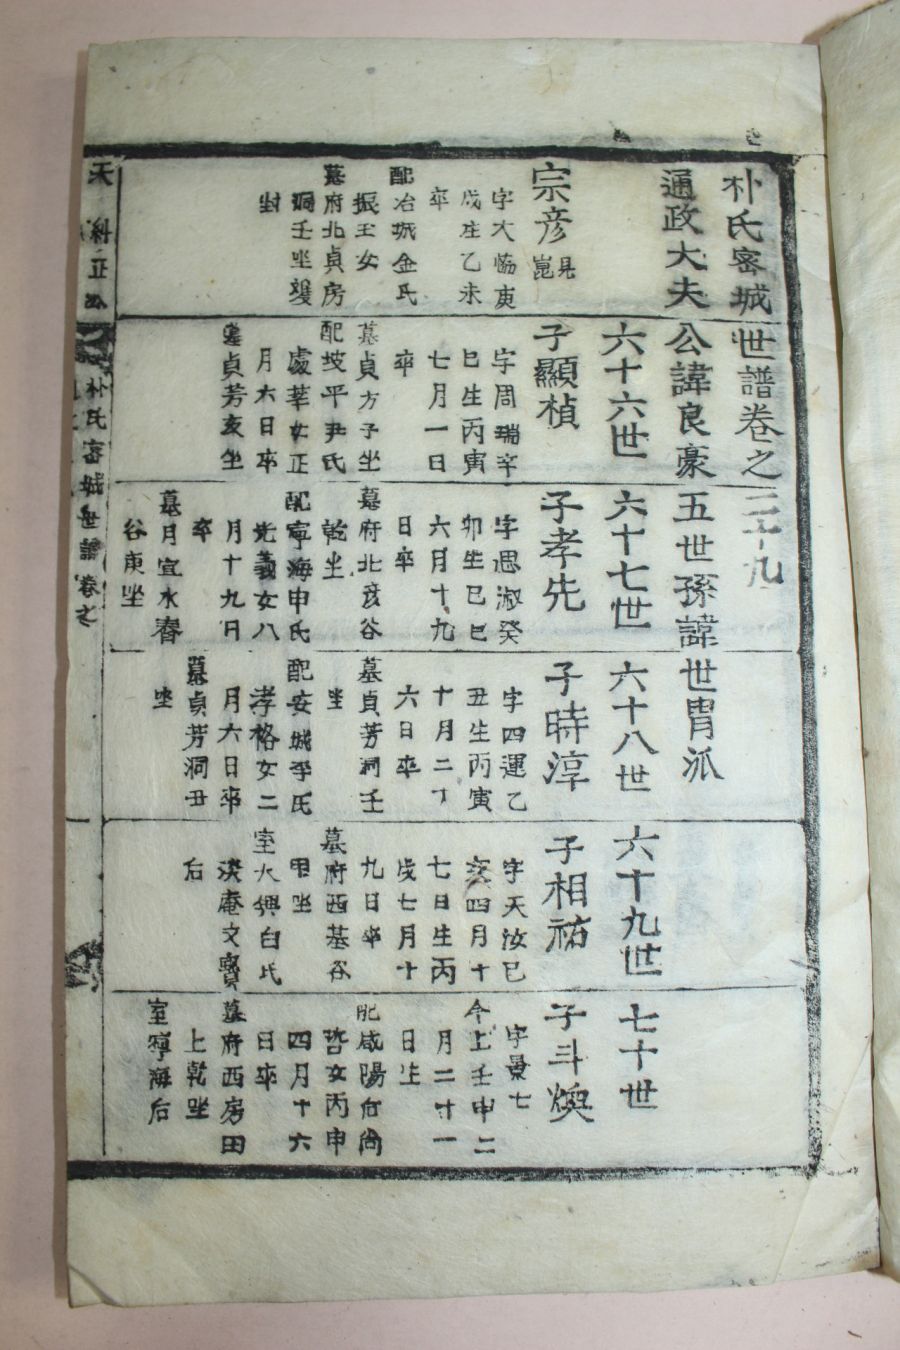 朴氏密城世譜卷之二十九
通政大夫公諱良豪五世孫諱世胄派
六十六世
六十七世
六十八世
六十九世
七十世
宗彦
見
崑
字大恊庚
戌生乙未
卒
配冶城金氏
振玉女
墓府北貞房
洞壬坐雙
封
子顯楨
字周瑞辛
巳生丙寅
七月一日
卒
墓貞方子坐
配坡平尹氏
處莘女正
月六日卒
墓貞芳亥坐
子孝先
字思淑癸
卯生己巳
六月十九
日卒
墓府北亥谷
乾坐
配寧海申氏
光義女八
月十九日
卒
墓月宜水春
谷庚坐
子時淳
字四運乙
丑生丙寅
十月二丁
六日卒
墓貞芳洞壬
坐
配安城李氏
孝格女二
月六日卒
墓貞芳洞丑
坐
子相祐
字天汝己
亥四月十
七日生丙
戌七月十
九日卒
墓府西基谷
甲坐
室大興白氏
淡庵文寶
后
子斗煥
字景七
今上壬申二
月二十一
日生
配咸陽
哲女丙申
四月十六
日卒
墓府西房田
上乾坐
室寧海后
朴氏密城世譜卷之